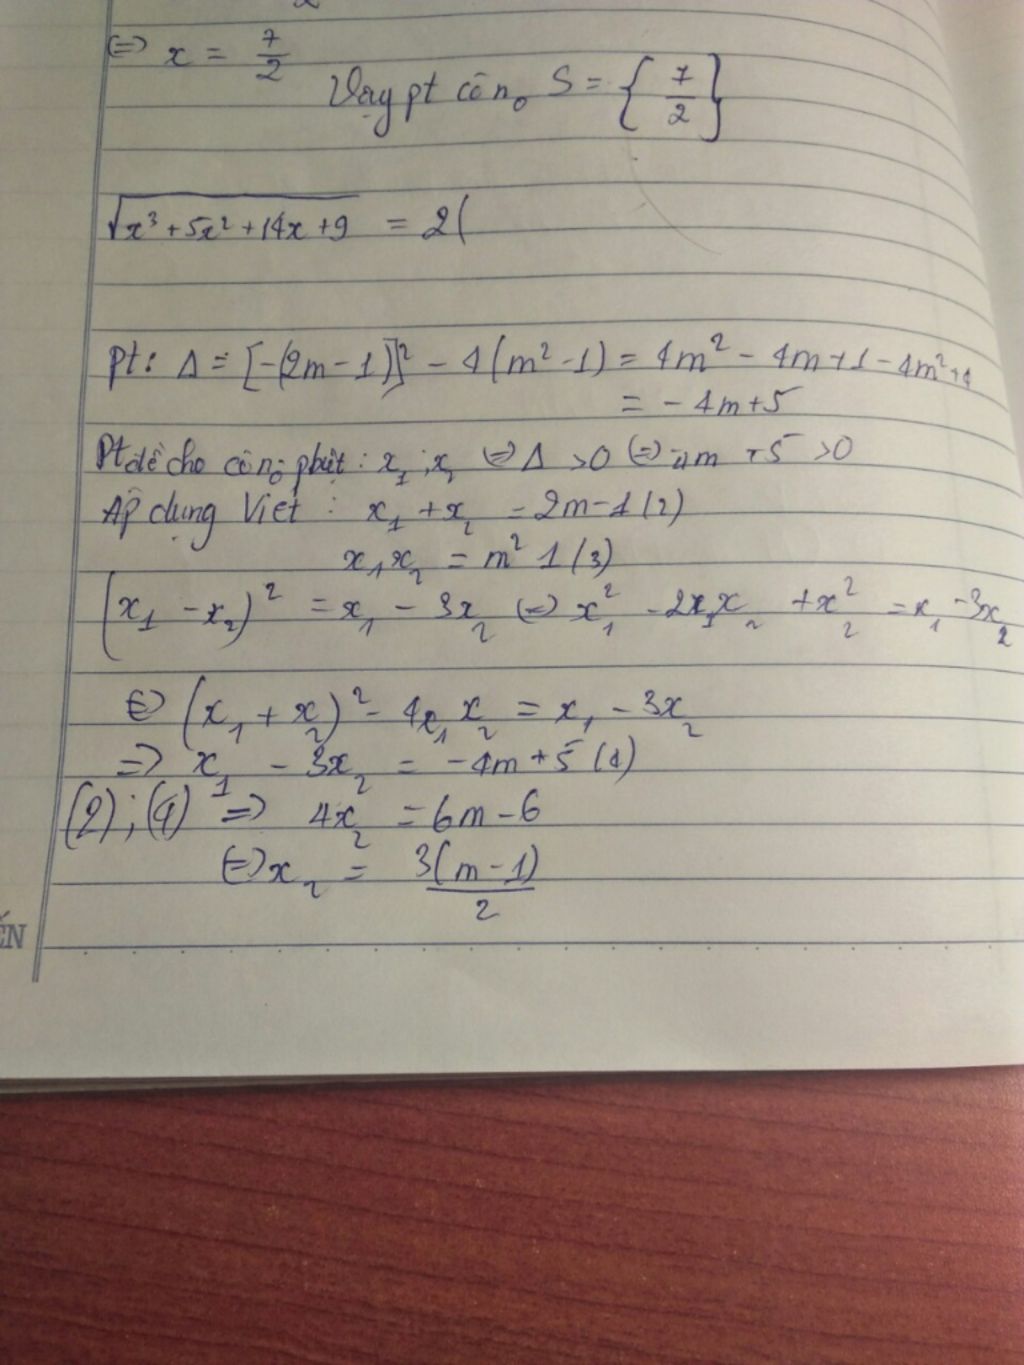 ⇔ x = 7/2
Vậy pt có n₀ S = {7/2}
√(x³ + 5x² + 14x + 9) = 2(
pt: Δ = [-(2m - 1)]² - 4(m² - 1) = 4m² - 4m + 1 - 4m² + 4
= - 4m + 5
Pt đề cho có n₀ pbiệt: x₁; x₂ ⇔ Δ > 0 ⇔ -4m + 5 > 0
Áp dụng Viet: x₁ + x₂ = 2m - 1 (2)
x₁x₂ = m² 1 (3)
(x₁ - x₂)² = x₁ - 3x₂ ⇔ x₁² - 2x₁x₂ + x₂² = x₁ - 3x₂
⇔ (x₁ + x₂)² - 4x₁x₂ = x₁ - 3x₂
=> x₁ - 3x₂ = -4m + 5 (4)
(2); (4) => 4x₂ = 6m - 6
⇔ x₂ = 3(m - 1)/2
ẾN